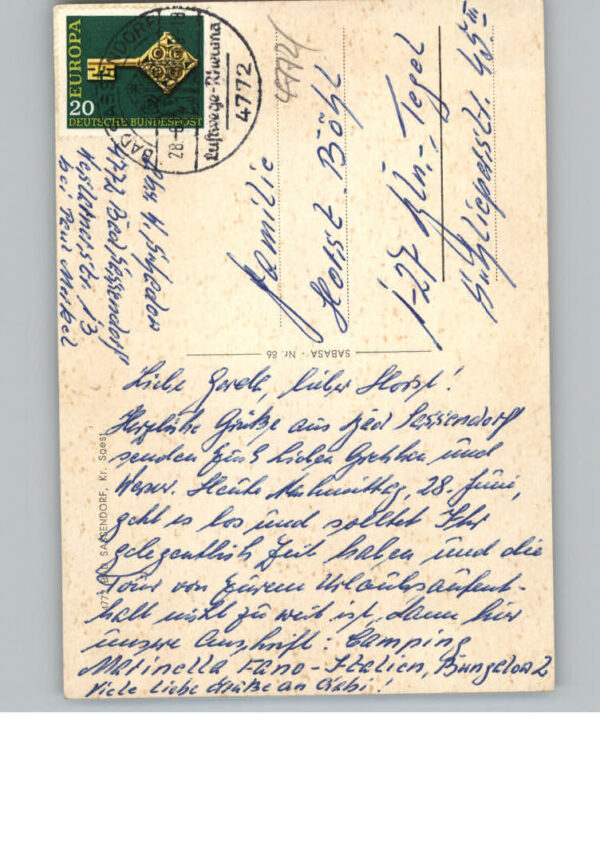 EUROPA
20
DEUTSCHE BUNDESPOST
28.6
Luftwege-Rheuma
4772
4772
Abs.
4772 Bad Sassendorf
13
bei Paul
Familie
Horst Böhl
1-27 Bln.-Tegel
45 III
SABASA - Nr. 86
4772 BAD SASSENDORF, Kr. Soest
Liebe Gerda, lieber Horst!
Herzliche Grüße aus Bad Sassendorf
senden Euch und
Werner. Heute Nachmittag, 28. Juni,
geht es los und solltet Ihr
gelegentlich Zeit haben und die
Tour von Eurem Urlaubsaufent-
halt nicht zu weit ist, dann hier
unsere Anschrift: Camping
Matinella Fano-Italien, Bungalow 2
Viele liebe Grüße an Gabi!